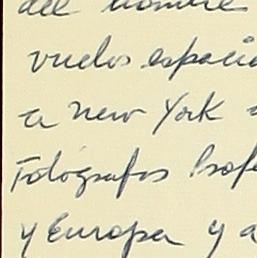 del nombre
vuelos espacia
a New York
Fotógrafos Prof
y Europa y a